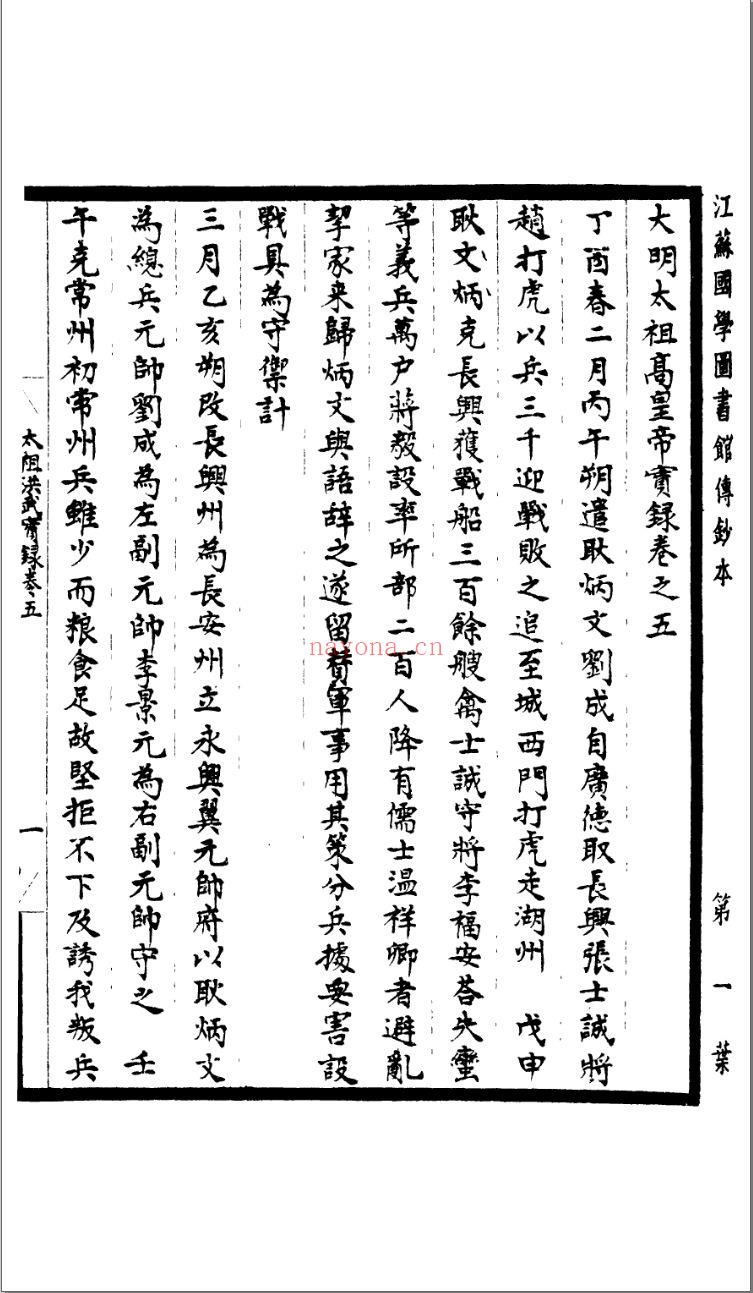 江蘇國學圖書館傳鈔本
第一葉
大明太祖高皇帝實錄卷之五
丁酉春二月丙午朔遣耿炳文劉成自廣德取長興張士誠將
趙打虎以兵三千迎戰敗之追至城西門打虎走湖州 戊申
耿文炳克長興獲戰船三百餘艘禽士誠守將李福安荅失蠻
等義兵萬户蔣毅設率所部二百人降有儒士温祥卿者避亂
挈家来歸炳文與語辞之遂留賛軍事用其策分兵據要害設
戰具為守禦計
三月乙亥朔改長興州為長安州立永興翼元帥府以耿炳文
為總兵元帥劉成為左副元帥李景元為右副元帥守之 壬
午克常州初常州兵雖少而粮食足故堅拒不下及誘我叛兵
太祖洪武實録卷五
一
nayona.cn